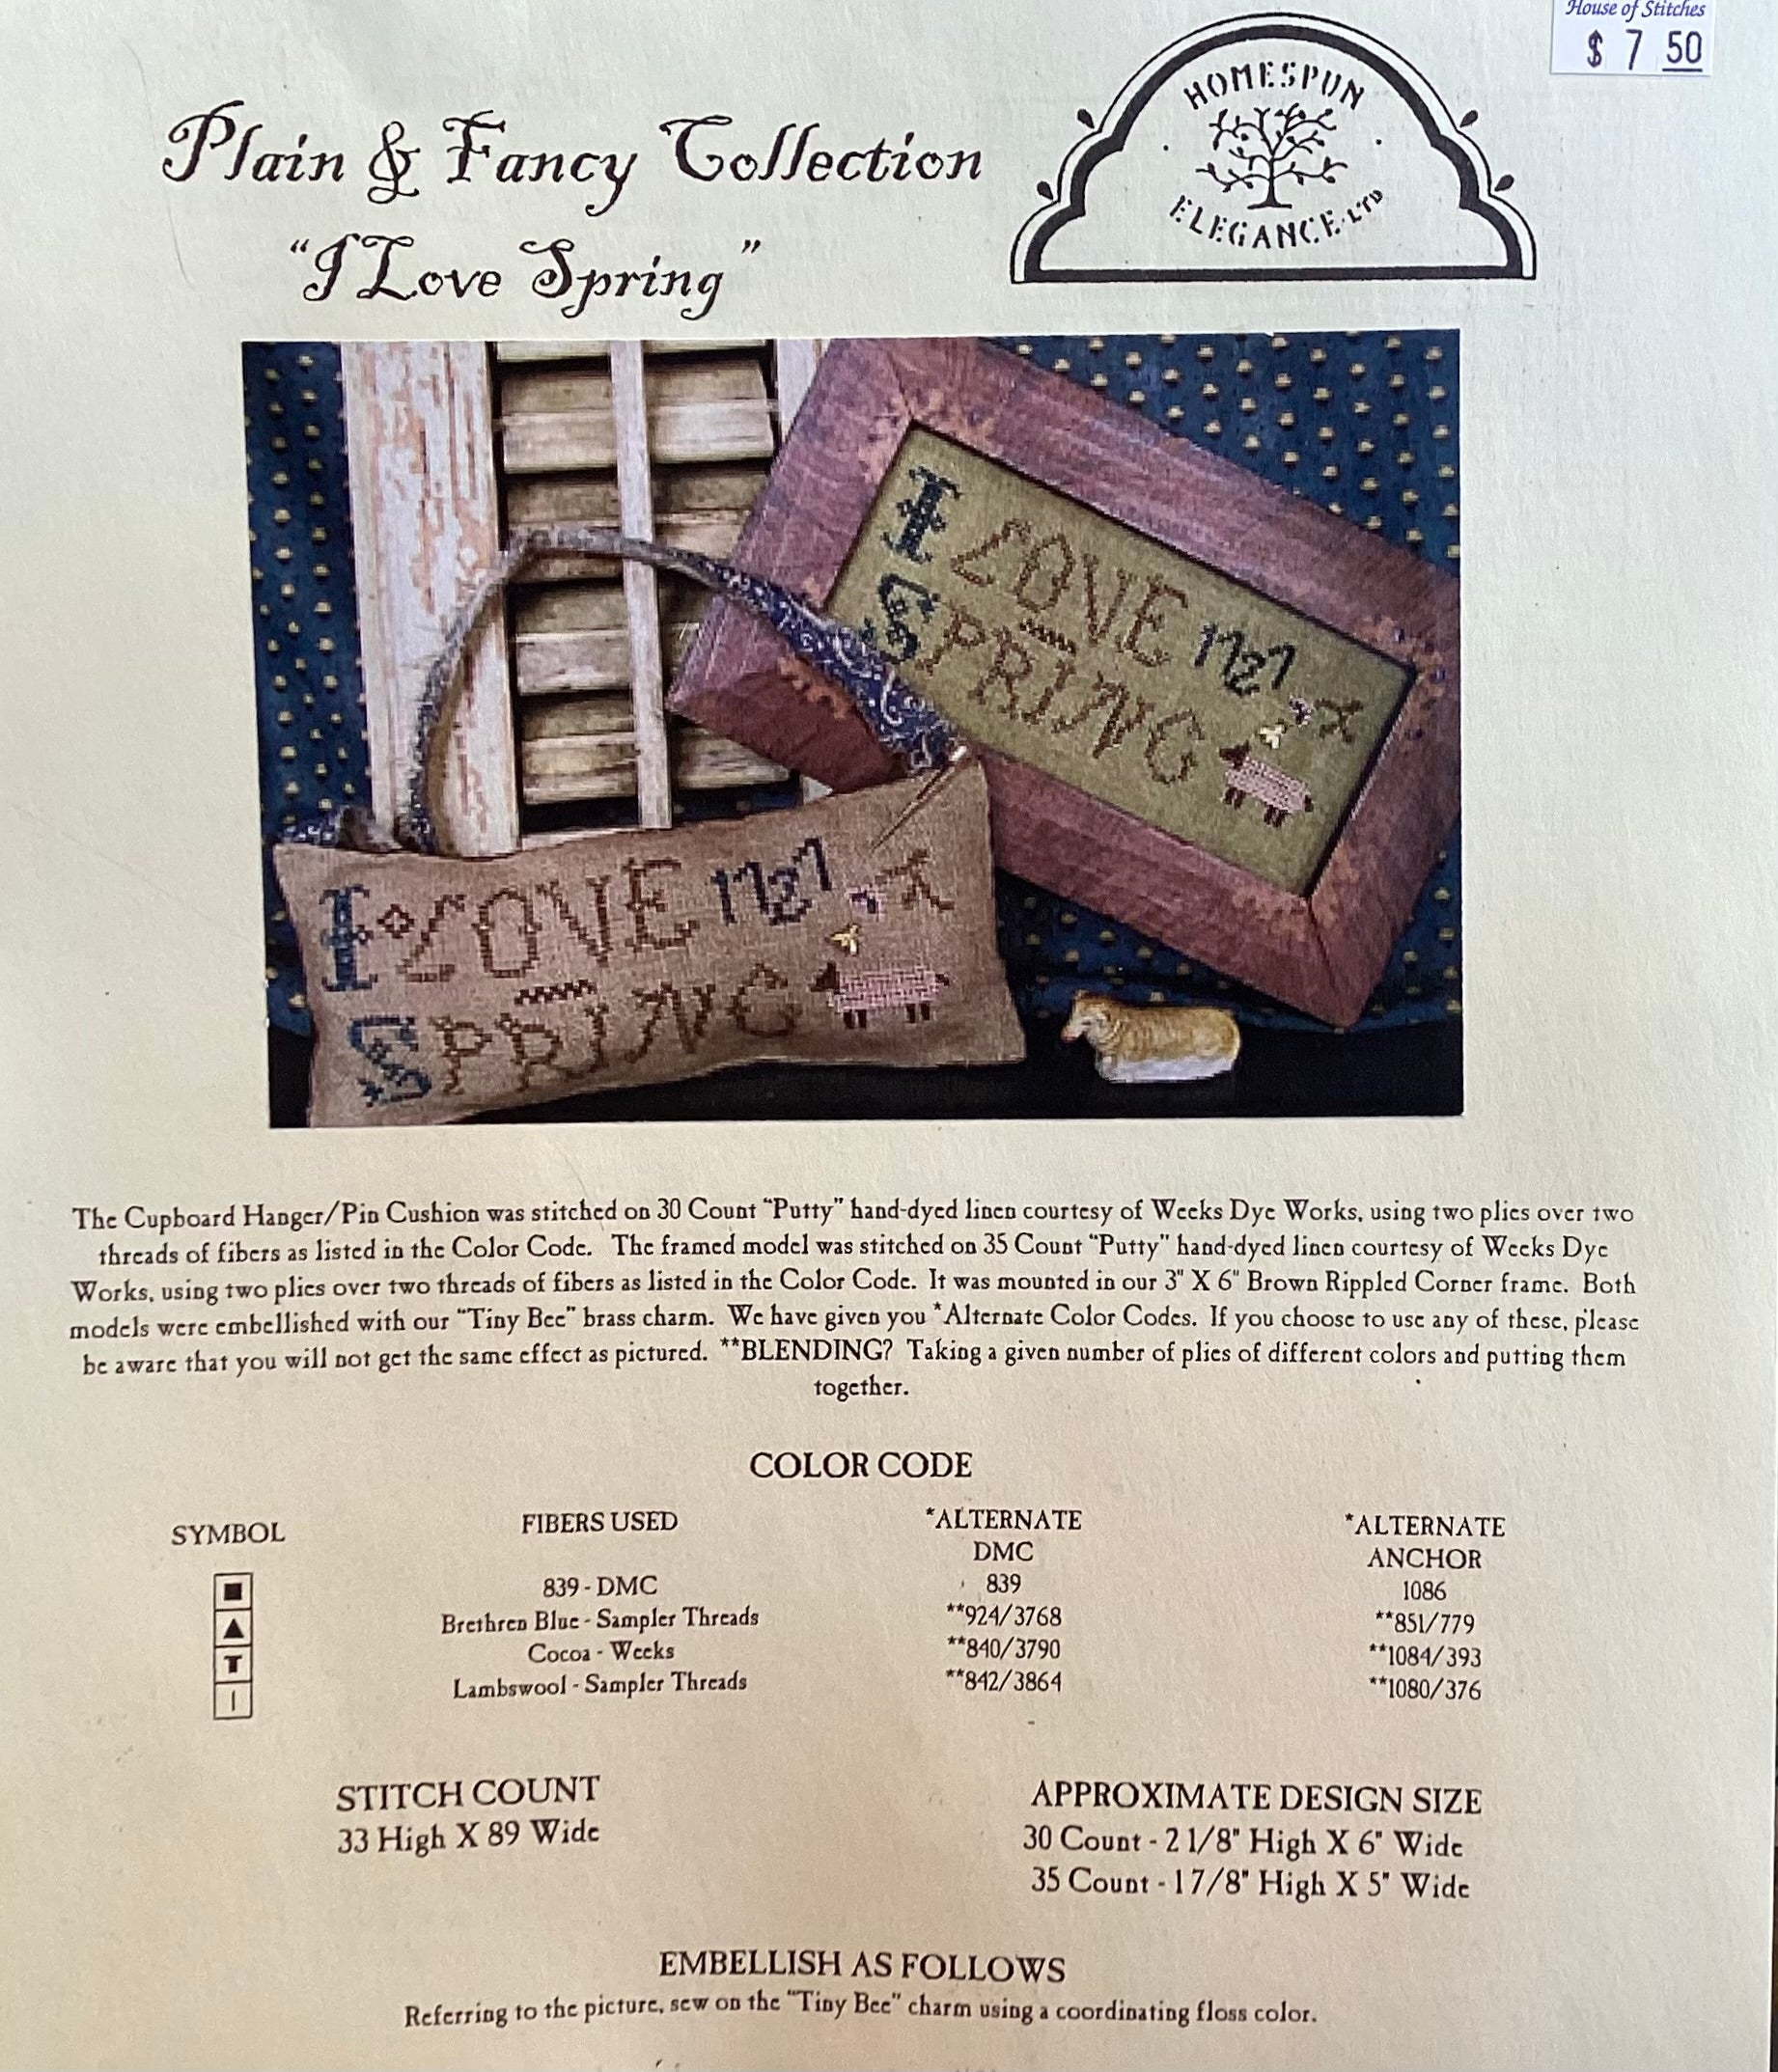 House of Stitches
$ 7 50
HOMESPUN
ELEGANCE LTD
Plain & Fancy Collection
"I Love Spring"
I LOVE 1727
SPRING
I LOVE 1727
SPRING
The Cupboard Hanger/Pin Cushion was stitched on 30 Count "Putty" hand-dyed linen courtesy of Weeks Dye Works, using two plies over two
threads of fibers as listed in the Color Code. The framed model was stitched on 35 Count "Putty" hand-dyed linen courtesy of Weeks Dye
Works, using two plies over two threads of fibers as listed in the Color Code. It was mounted in our 3" X 6" Brown Rippled Corner frame. Both
models were embellished with our "Tiny Bee" brass charm. We have given you *Alternate Color Codes. If you choose to use any of these, please
be aware that you will not get the same effect as pictured. **BLENDING? Taking a given number of plies of different colors and putting them
together.
COLOR CODE
SYMBOL FIBERS USED *ALTERNATE *ALTERNATE
DMC ANCHOR
839 - DMC 839 1086
Brethren Blue - Sampler Threads **924/3768 **851/779
T Cocoa - Weeks **840/3790 **1084/393
I Lambswool - Sampler Threads **842/3864 **1080/376
STITCH COUNT
33 High X 89 Wide
APPROXIMATE DESIGN SIZE
30 Count - 2 1/8" High X 6" Wide
35 Count - 1 7/8" High X 5" Wide
EMBELLISH AS FOLLOWS
Referring to the picture, sew on the "Tiny Bee" charm using a coordinating floss color.